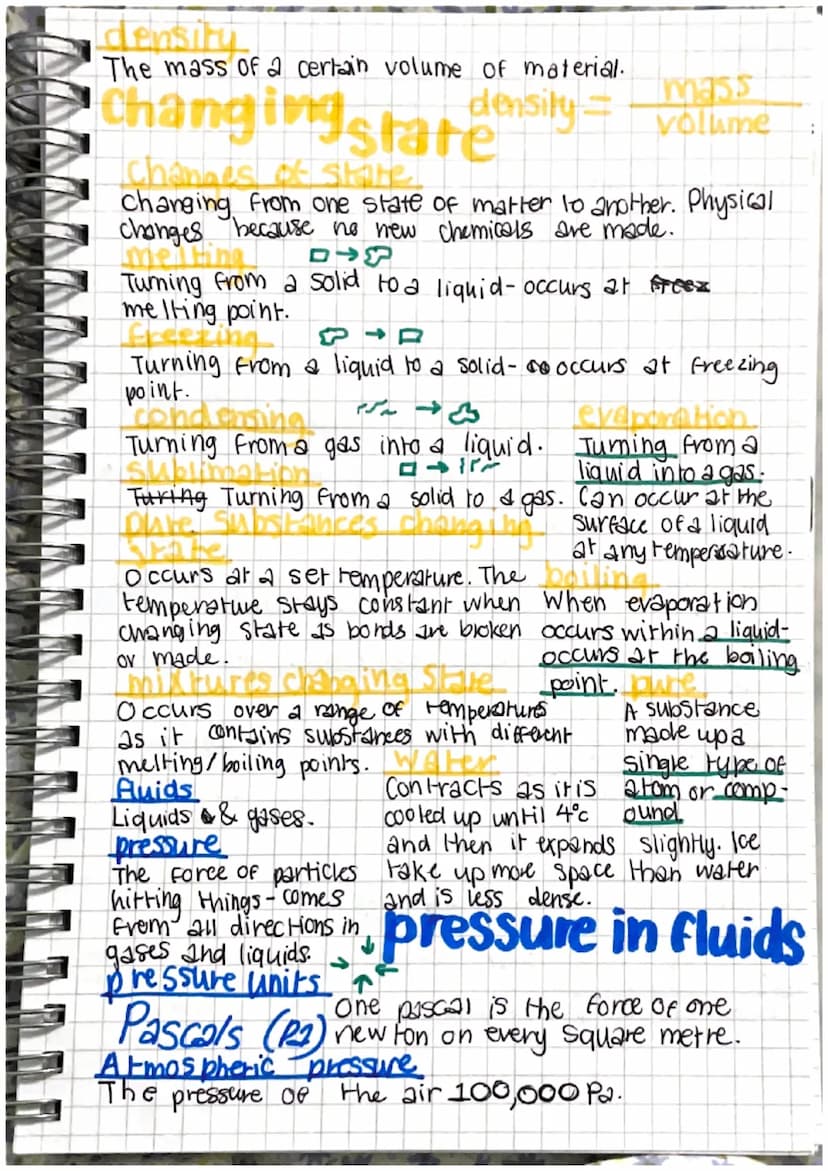 density
The mass of a certain volume of material.
density = mass
volume
Changing state
Changes of state
Changing from one state of matter to another. Physical
changes because no new chemicals are made.
melting
Turning from a solid to a liquid- occurs at
melting point.
freezing
Turning from a liquid to a solid- occurs at freezing
point.
condensing
Turning from a gas into a liquid.
sublimation
Turing Turning from a solid to a gas.
evaporation
Turning from a
liquid into a gas.
Can occur at the
surface of a liquid
at any temperature.
pure substances changing
state
Occurs at a set temperature. The
temperature stays constant when
changing state as bonds are broken
or made.
boiling
When evaporation
occurs within a liquid-
occurs at the boiling
point.
mixtures changing state
Occurs over a range of temperatures
as it contains substances with different
melting/boiling points.
pure
A substance
made up a
single type of
atom or comp-
ound
water
Contracts as it is
cooled up until 4°c
and then it expands slightly. Ice
take up more space than water
and is less dense.
fluids
Liquids & gases.
pressure
The force of particles
hitting things- comes
from all directions in
gases and liquids.
pressure in fluids
pressure units
Pascals (Pa)
One pascal is the force of one
newton on every square metre.
Atmospheric pressure
The pressure of the air 100,000 Pa.